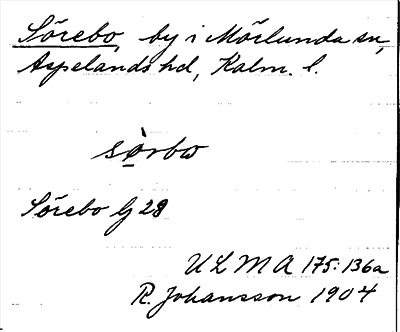 Sörebo, by i Mörlunda sn,
Aspelands hd, Kalm. l.
Sörebo Lj 28
ULMA 175:136a
R. Johansson 1904